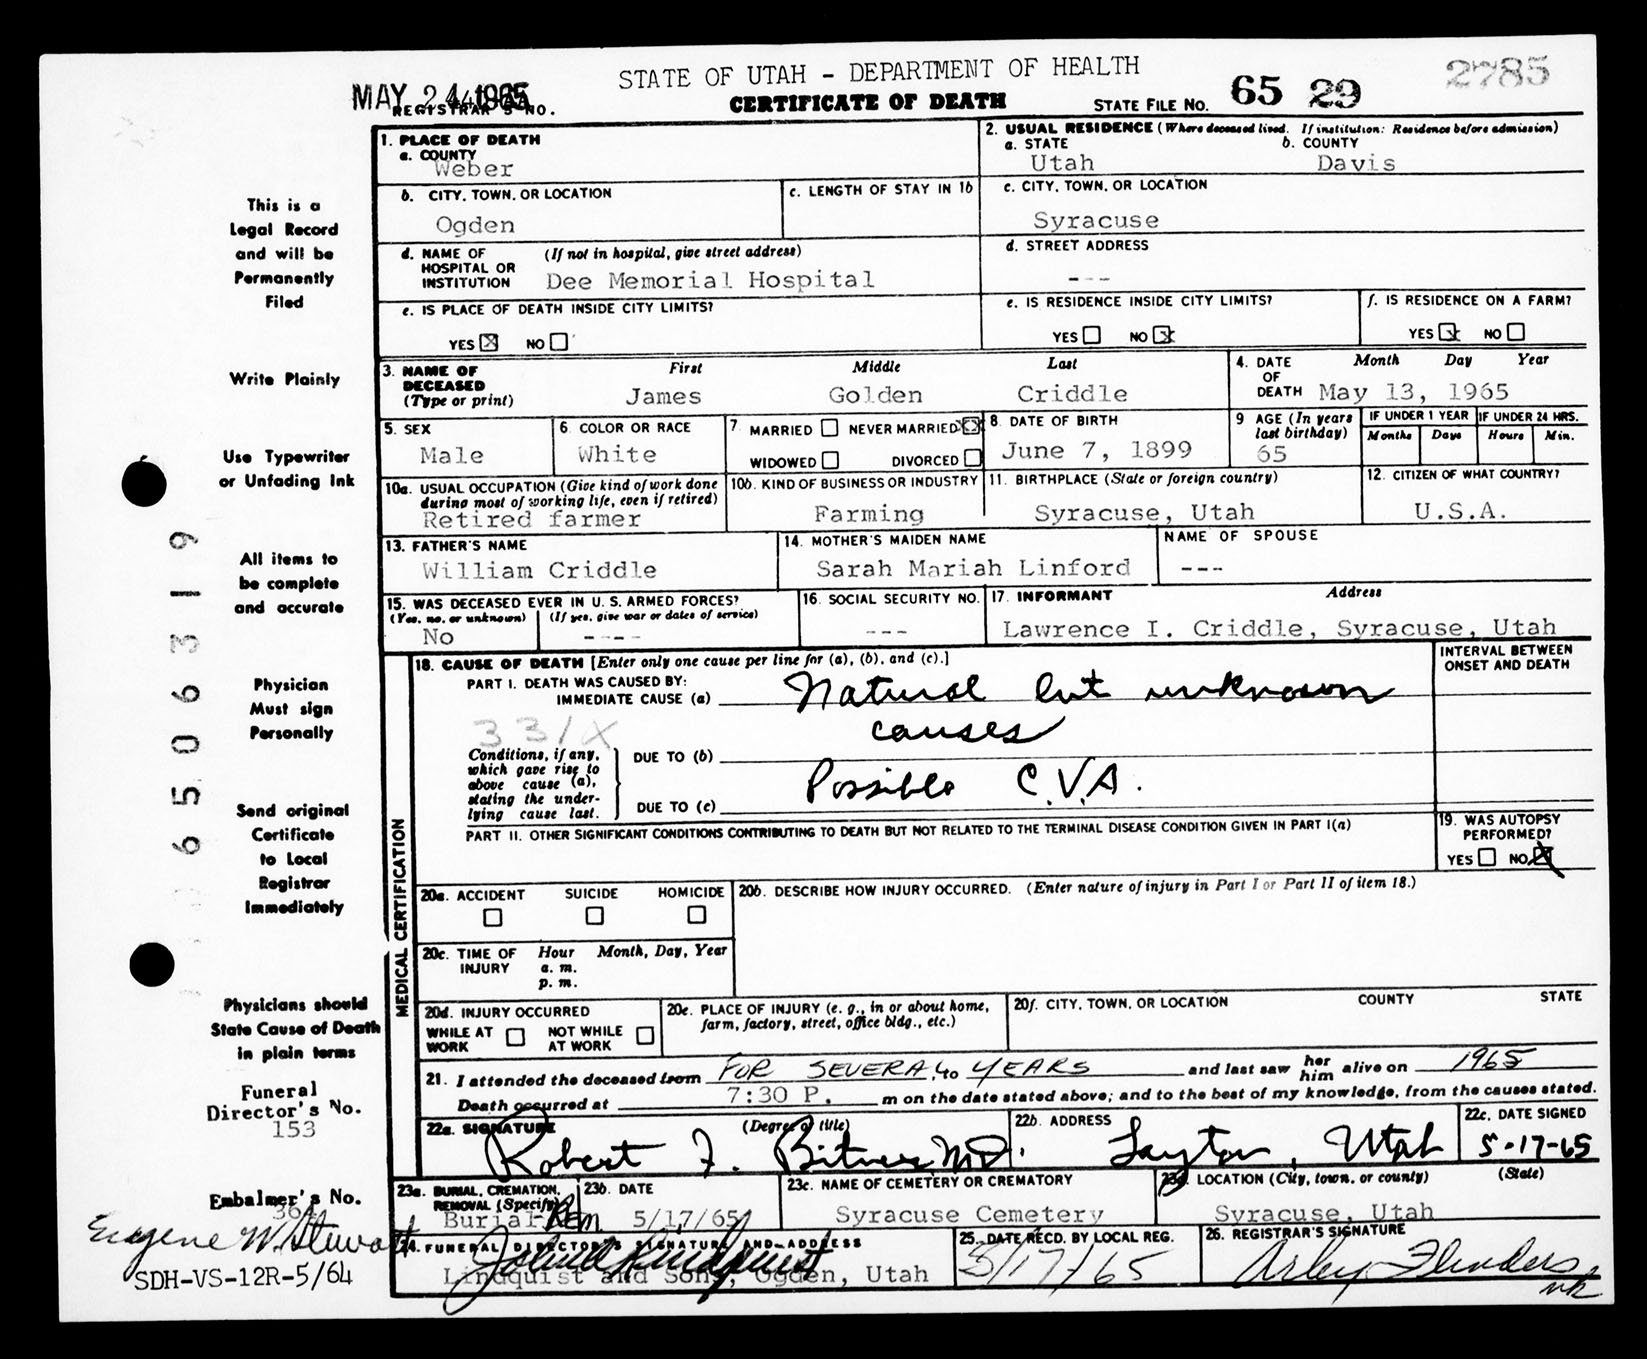 STATE OF UTAH - DEPARTMENT OF HEALTH
CERTIFICATE OF DEATH
MAY 24 1965
REGISTRAR'S NO.
STATE FILE NO. 65 29
2785
This is a
Legal Record
and will be
Permanently
Filed
Write Plainly
Use Typewriter
or Unfading Ink
All items to
be complete
and accurate
Physician
Must sign
Personally
Send original
Certificate
to Local
Registrar
Immediately
Physicians should
State Cause of Death
in plain terms
Funeral
Director's No.
153
Embalmer's No.
364
Eugene W. Stewart
SDH-VS-12R-5/64
65 06319
1. PLACE OF DEATH
a. COUNTY
Weber
2. USUAL RESIDENCE (Where deceased lived. If institution: Residence before admission)
a. STATE b. COUNTY
Utah Davis
b. CITY, TOWN, OR LOCATION
Ogden
c. LENGTH OF STAY IN 1b
c. CITY, TOWN, OR LOCATION
Syracuse
d. NAME OF HOSPITAL OR INSTITUTION (If not in hospital, give street address)
Dee Memorial Hospital
d. STREET ADDRESS
---
e. IS PLACE OF DEATH INSIDE CITY LIMITS?
YES X NO
e. IS RESIDENCE INSIDE CITY LIMITS?
YES NO X
f. IS RESIDENCE ON A FARM?
YES X NO
3. NAME OF DECEASED (Type or print)
First Middle Last
James Golden Criddle
4. DATE OF DEATH Month Day Year
May 13, 1965
5. SEX
Male
6. COLOR OR RACE
White
7. MARRIED NEVER MARRIED X
WIDOWED DIVORCED
8. DATE OF BIRTH
June 7, 1899
9 AGE (In years last birthday)
65
IF UNDER 1 YEAR IF UNDER 24 HRS.
Months Days Hours Min.
10a. USUAL OCCUPATION (Give kind of work done during most of working life, even if retired)
Retired farmer
10b. KIND OF BUSINESS OR INDUSTRY
Farming
11. BIRTHPLACE (State or foreign country)
Syracuse, Utah
12. CITIZEN OF WHAT COUNTRY?
U.S.A.
13. FATHER'S NAME
William Criddle
14. MOTHER'S MAIDEN NAME
Sarah Mariah Linford
NAME OF SPOUSE
---
15. WAS DECEASED EVER IN U. S. ARMED FORCES?
(Yes, no, or unknown) (If yes, give war or dates of service)
No ----
16. SOCIAL SECURITY NO.
---
17. INFORMANT Address
Lawrence I. Criddle, Syracuse, Utah
MEDICAL CERTIFICATION
18. CAUSE OF DEATH [Enter only one cause per line for (a), (b), and (c).]
INTERVAL BETWEEN ONSET AND DEATH
PART I. DEATH WAS CAUSED BY:
IMMEDIATE CAUSE (a) Natural but unknown
causes
331X
Conditions, if any, which gave rise to above cause (a), stating the underlying cause last.
DUE TO (b)
Possible C.V.A.
DUE TO (c)
PART II. OTHER SIGNIFICANT CONDITIONS CONTRIBUTING TO DEATH BUT NOT RELATED TO THE TERMINAL DISEASE CONDITION GIVEN IN PART I(a)
19. WAS AUTOPSY PERFORMED?
YES NO X
20a. ACCIDENT SUICIDE HOMICIDE
20b. DESCRIBE HOW INJURY OCCURRED. (Enter nature of injury in Part I or Part II of item 18.)
20c. TIME OF INJURY Hour Month, Day, Year
a. m.
p. m.
20d. INJURY OCCURRED
WHILE AT WORK NOT WHILE AT WORK
20e. PLACE OF INJURY (e. g., in or about home, farm, factory, street, office bldg., etc.)
20f. CITY, TOWN, OR LOCATION COUNTY STATE
21. I attended the deceased from FOR SEVERAL to YEARS and last saw her him alive on 1965
Death occurred at 7:30 P. m on the date stated above; and to the best of my knowledge, from the causes stated.
22a. SIGNATURE (Degree or title)
Robert F. Bitner, MD.
22b. ADDRESS
Layton, Utah
22c. DATE SIGNED
5-17-65
23a. BURIAL, CREMATION, REMOVAL (Specify)
Burial-Rem
23b. DATE
5/17/65
23c. NAME OF CEMETERY OR CREMATORY
Syracuse Cemetery
23d. LOCATION (City, town, or county) (State)
Syracuse, Utah
24. FUNERAL DIRECTOR'S SIGNATURE AND ADDRESS
Lindquist and Sons, Ogden, Utah
25. DATE RECD. BY LOCAL REG.
5/17/65
26. REGISTRAR'S SIGNATURE
Arley Flinders